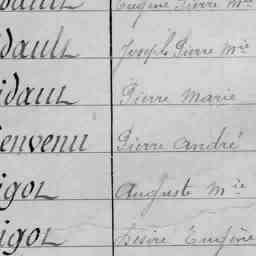 Eugène Pierre Mie
Joseph Pierre Mie
idault Pierre Marie
ienvenu Pierre André
igot Auguste Mie
igot Désiré Eugène